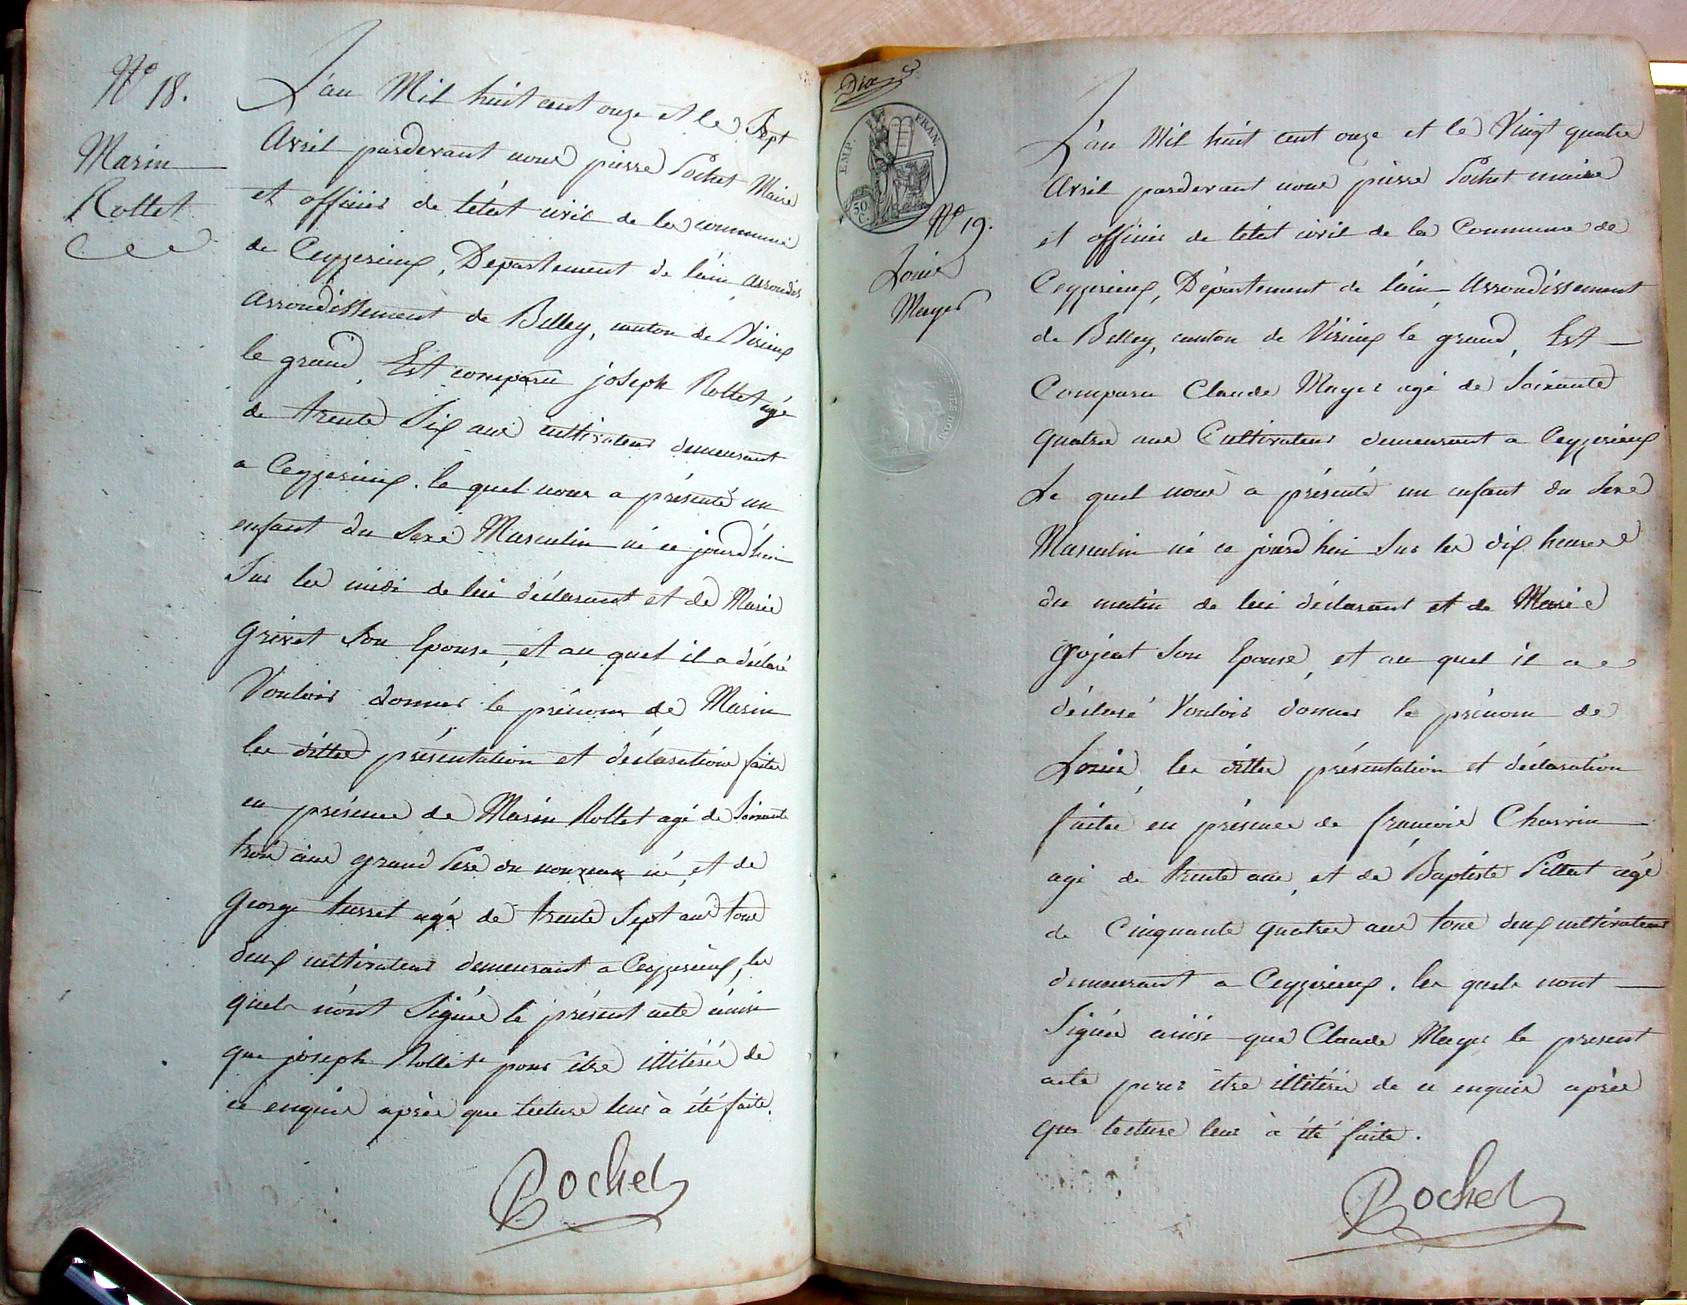 N.º 18.
Marin
Rottet
L'an Mil huit cent onze et le Sept
Avril pardevant nous pierre Pochet Maire
et officier de l'état civil de la commune
de Ceyzerieux, Département de l'ain, arrondis
Arrondissement de Belley, canton de Virieux
le grand, Est comparu joseph Rottet agé
de trente Six ans cultivateur demeurant
a Ceyzerieux. le quel nous a présenté un
enfant du Sexe Masculin né ce jourd'hui
Sur les midi de lui déclarant et de Marie
Grivet Son Epouse, et au quel il a déclaré
Vouloir donner le prénom de Marin
les dittes présentation et déclarations faites
en présence de Marin Rottet agé de Soixante
trois ans grand Pere du nouveau né, et de
George agé de trente Sept ans tous
deux cultivateurs demeurant a Ceyzerieux, les
quels n'ont Signés le présent acte ainsi
que joseph Rottet pour être illitéré de
ce enquis après que lecture leur à été faite.
Pochet
Dix
EMP. FRAN.
50 C.
N.º 19.
Louis
Mayer
L'an Mil huit cent onze et le Vingt quatre
Avril pardevant nous pierre Pochet maire
et officier de l'état civil de la Commune de
Ceyzerieux, Département de l'ain, Arrondissement
de Belley, canton de Virieux le grand, Est
Comparu Claude Mayer agé de Soixante
Quatre ans Cultivateur demeurant a Ceyzerieux
Le quel nous à présenté un enfant du Sexe
Masculin né ce jourd'hui Sur les dix heures
du matin de lui déclarant et de Marie
Gojeat Son Epouse, et au quel il a
déclaré Vouloir donner le prénom de
Louis, les dittes présentation et déclaration
faites en présence de francois Charvin
agé de trente ans, et de Baptiste Pillat agé
de Cinquante Quatre ans tous deux cultivateurs
demeurant a Ceyzerieux. les quels nont
Signés ainsi que Claude Mayer le present
acte pour être illitéré de ce enquis après
que lecture leur à été faite.
Pochet